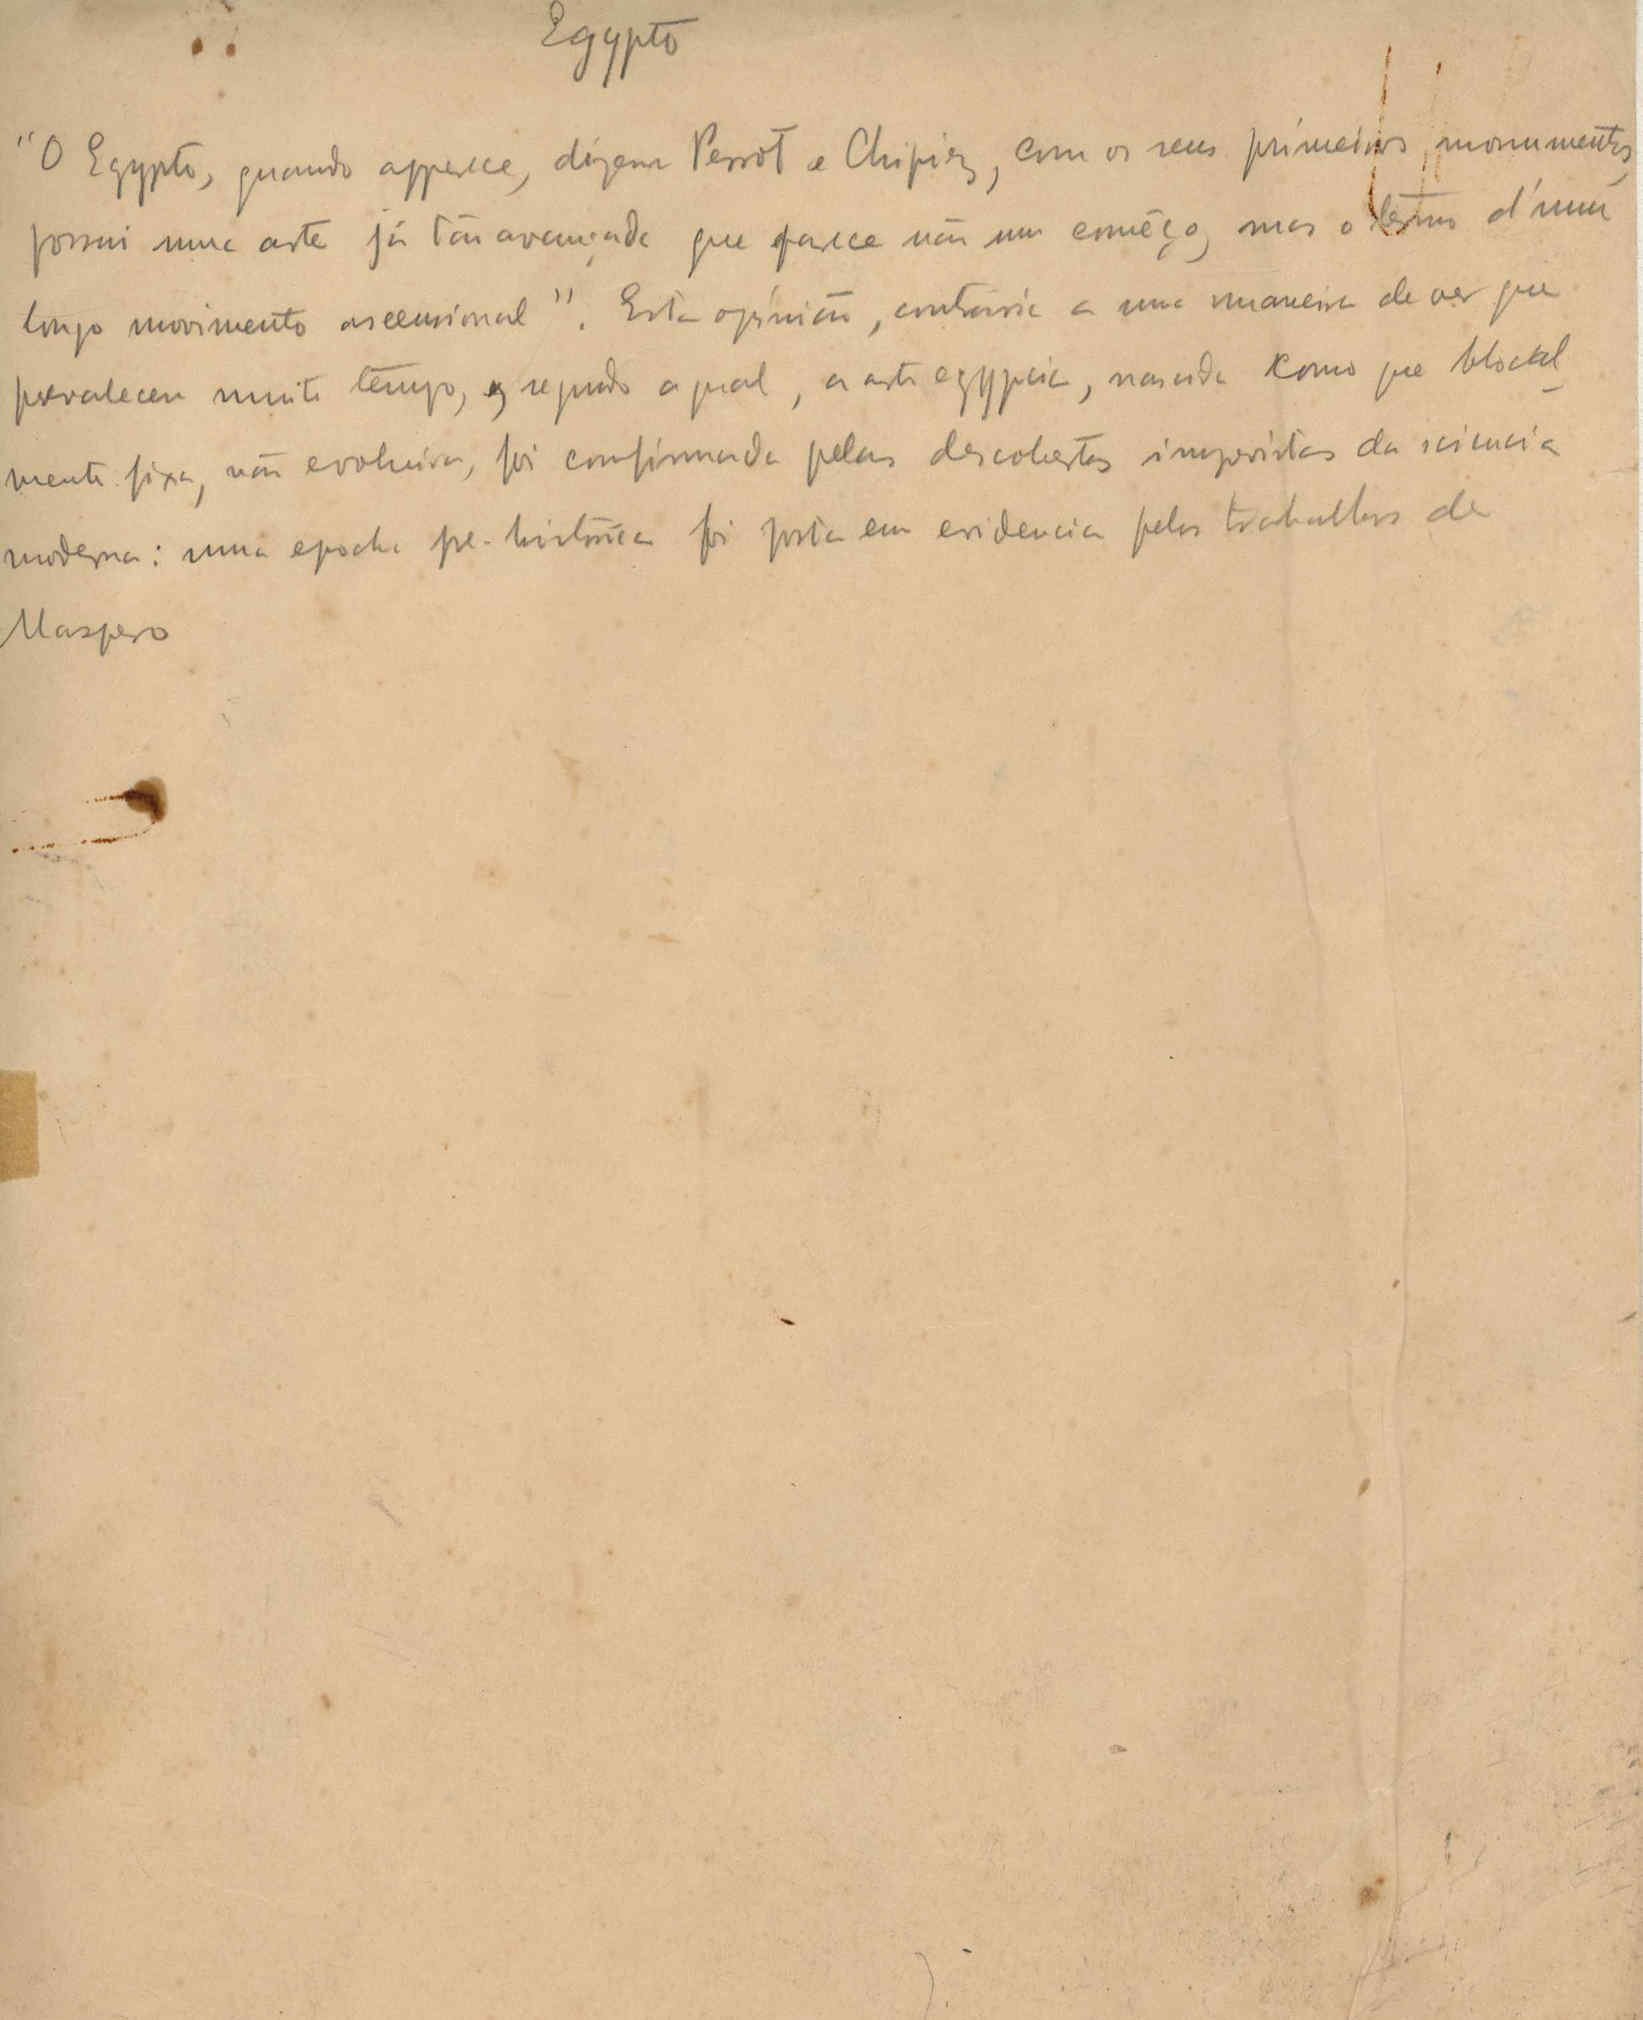 Egypto
"O Egypto, quando apparece, dizem Perrot e Chipiez, com os seus primeiros monumentos,
possui uma arte já tão avançada que parece não um comêço, mas o têrmo d'um
longo movimento ascensional". Esta opinião, contraria a uma maneira de ver que
prevaleceu muito tempo, e segundo a qual, a arte egypcia, nascida como que
mente fixa, não evoluira, foi confirmada pelas descobertas imprevistas da sciencia
moderna: uma epocha pre-historica foi posta em evidencia pelos trabalhos de
Maspero